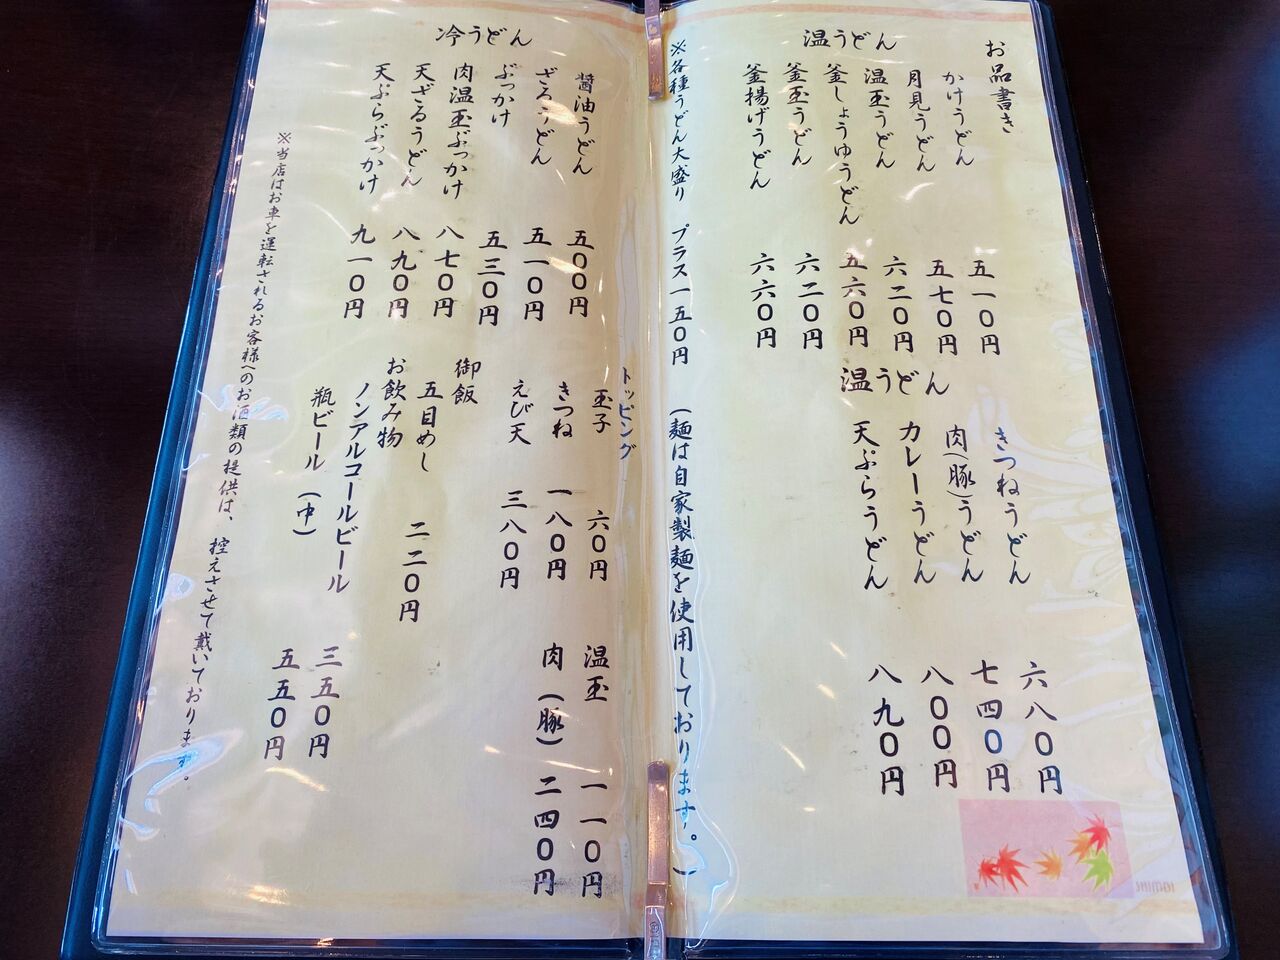 お品書き
温うどん
かけうどん 五一〇円
月見うどん 五七〇円
温玉うどん 六二〇円
釜しょうゆうどん 五六〇円
釜玉うどん 六二〇円
釜揚げうどん 六六〇円
温うどん
きつねうどん 六八〇円
肉(豚)うどん 七四〇円
カレーうどん 八〇〇円
天ぷらうどん 八九〇円
※各種うどん大盛り プラス一五〇円 (麺は自家製麺を使用しております。)
冷うどん
醤油うどん 五〇〇円
ざるうどん 五一〇円
ぶっかけ 五三〇円
肉温玉ぶっかけ 八七〇円
天ざるうどん 八九〇円
天ぷらぶっかけ 九一〇円
トッピング
玉子 六〇円 温玉 一一〇円
きつね 一八〇円 肉(豚) 二四〇円
えび天 三八〇円
御飯
五目めし 二二〇円
お飲み物
ノンアルコールビール 三五〇円
瓶ビール(中) 五五〇円
※当店はお車を運転されるお客様へのお酒類の提供は、控えさせて戴いております。